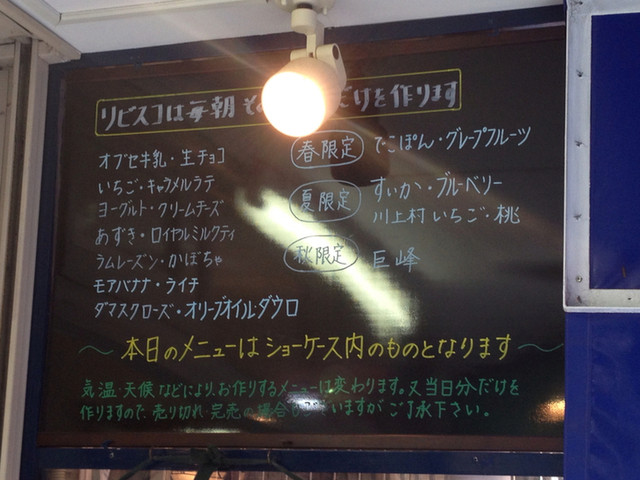 リビスコは毎朝 そ だけを作ります
オブセ牛乳・生チョコ
いちご・キャラメルラテ
ヨーグルト・クリームチーズ
あずき・ロイヤルミルクティ
ラムレーズン・かぼちゃ
モアバナナ・ライチ
ダマスクローズ・オリーブオイル・ダウロ
春限定 でこぽん・グレープフルーツ
夏限定 すいか・ブルーベリー
川上村いちご・桃
秋限定 巨峰
〜本日のメニューはショーケース内のものとなります〜
気温・天候などにより、お作りするメニューは変わります。又当日分だけを
作りますので、売り切れ・完売の場合もございますがご了承下さい。